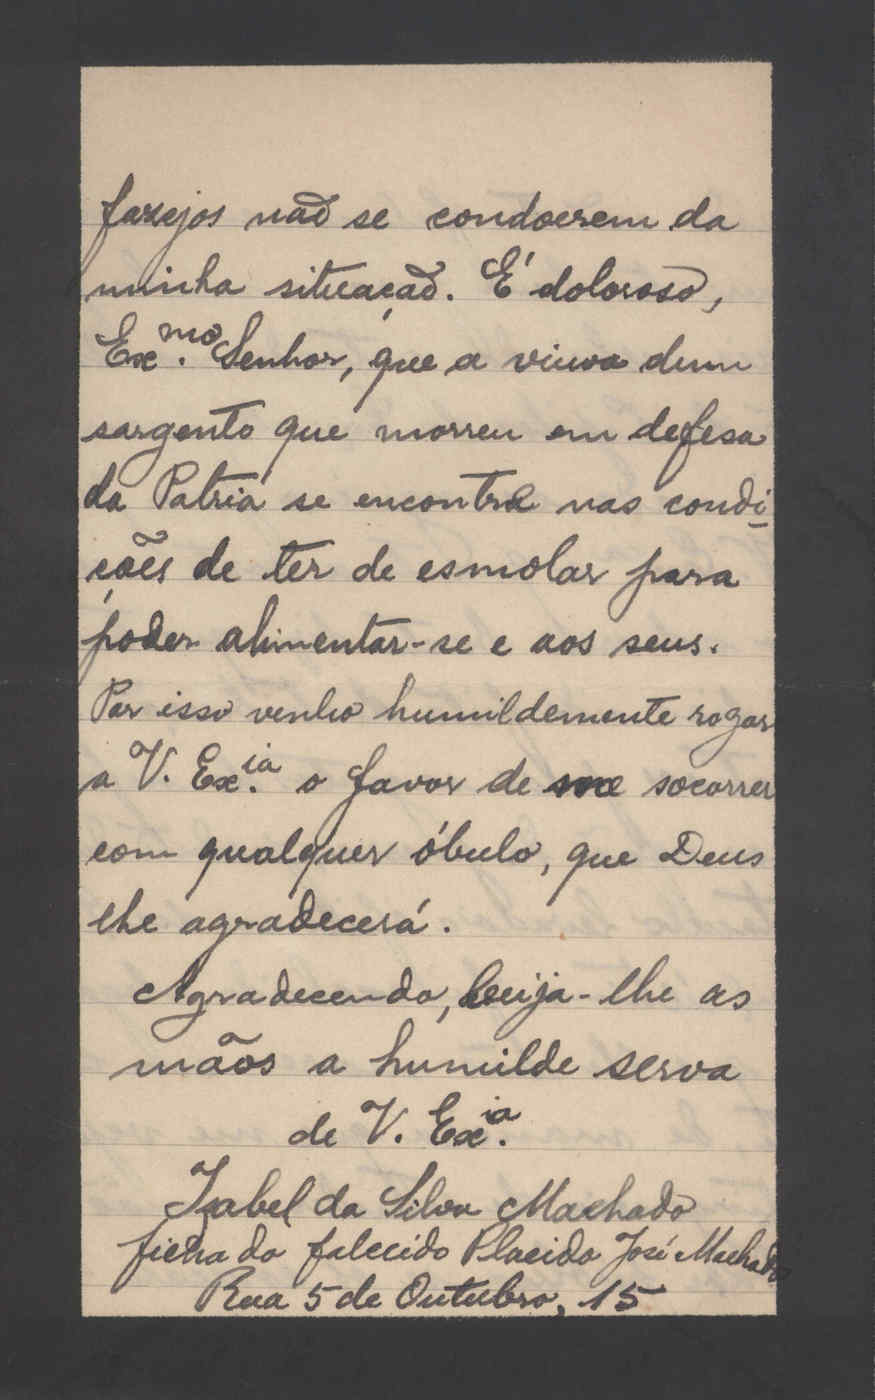 farejos não se condoerem da
minha situação. É doloroso,
Ex.mo Senhor, que a viuva dum
sargento que morreu em defesa
da Patria se encontra nas condi-
ções de ter de esmolar para
poder alimentar-se e aos seus.
Por isso venho humildemente rogar
a V. Ex.ia o favor de me socorrer
com qualquer óbulo, que Deus
lhe agradecerá.
Agradecendo, beija-lhe as
mãos a humilde serva
de V. Ex.ia
Izabel da Silva Machado
do falecido Placido José Machado
Rua 5 de Outubro, 15